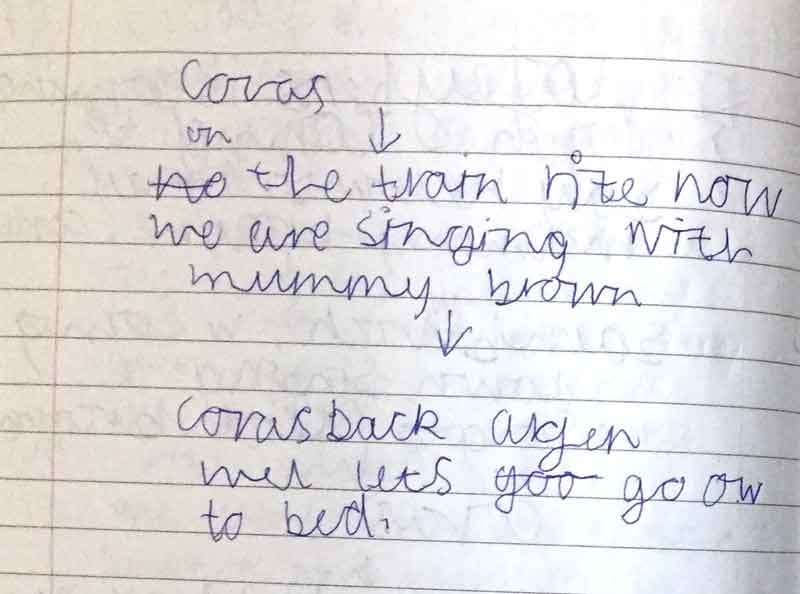 Coras
on
no the train rite now
we are singing with
mummy brown
Coras back argen
wel lets goo go ow
to bed.